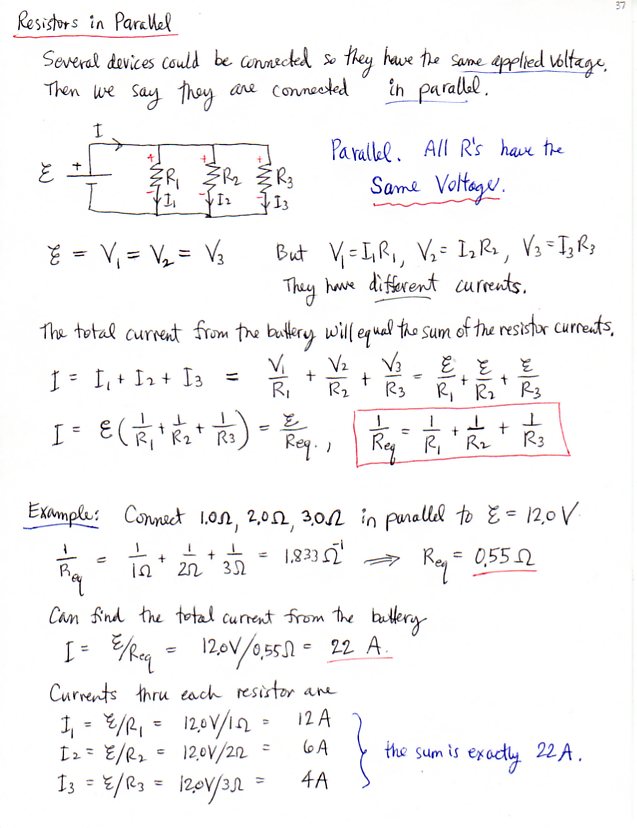 37
Resistors in Parallel
Several devices could be connected so they have the same applied voltage.
Then we say they are connected in parallel.
I
ℰ + R₁ R₂ R₃
+ - + - + -
I₁ I₂ I₃
Parallel. All R's have the
Same Voltage.
ℰ = V₁ = V₂ = V₃ But V₁=I₁R₁, V₂= I₂R₂, V₃=I₃R₃
They have different currents.
The total current from the battery will equal the sum of the resistor currents.
I = I₁ + I₂ + I₃ = V₁/R₁ + V₂/R₂ + V₃/R₃ = ℰ/R₁ + ℰ/R₂ + ℰ/R₃
I = ℰ(1/R₁ + 1/R₂ + 1/R₃) = ℰ/Req., 1/Req = 1/R₁ + 1/R₂ + 1/R₃
Example: Connect 1.0Ω, 2.0Ω, 3.0Ω in parallel to ℰ = 12.0 V.
1/Req = 1/1Ω + 1/2Ω + 1/3Ω = 1.833 Ω⁻¹ ⟹ Req = 0.55 Ω
Can find the total current from the battery
I = ℰ/Req = 12.0V/0.55Ω = 22 A.
Currents thru each resistor are
I₁ = ℰ/R₁ = 12.0V/1Ω = 12 A
I₂ = ℰ/R₂ = 12.0V/2Ω = 6A
I₃ = ℰ/R₃ = 12.0V/3Ω = 4A
the sum is exactly 22 A.